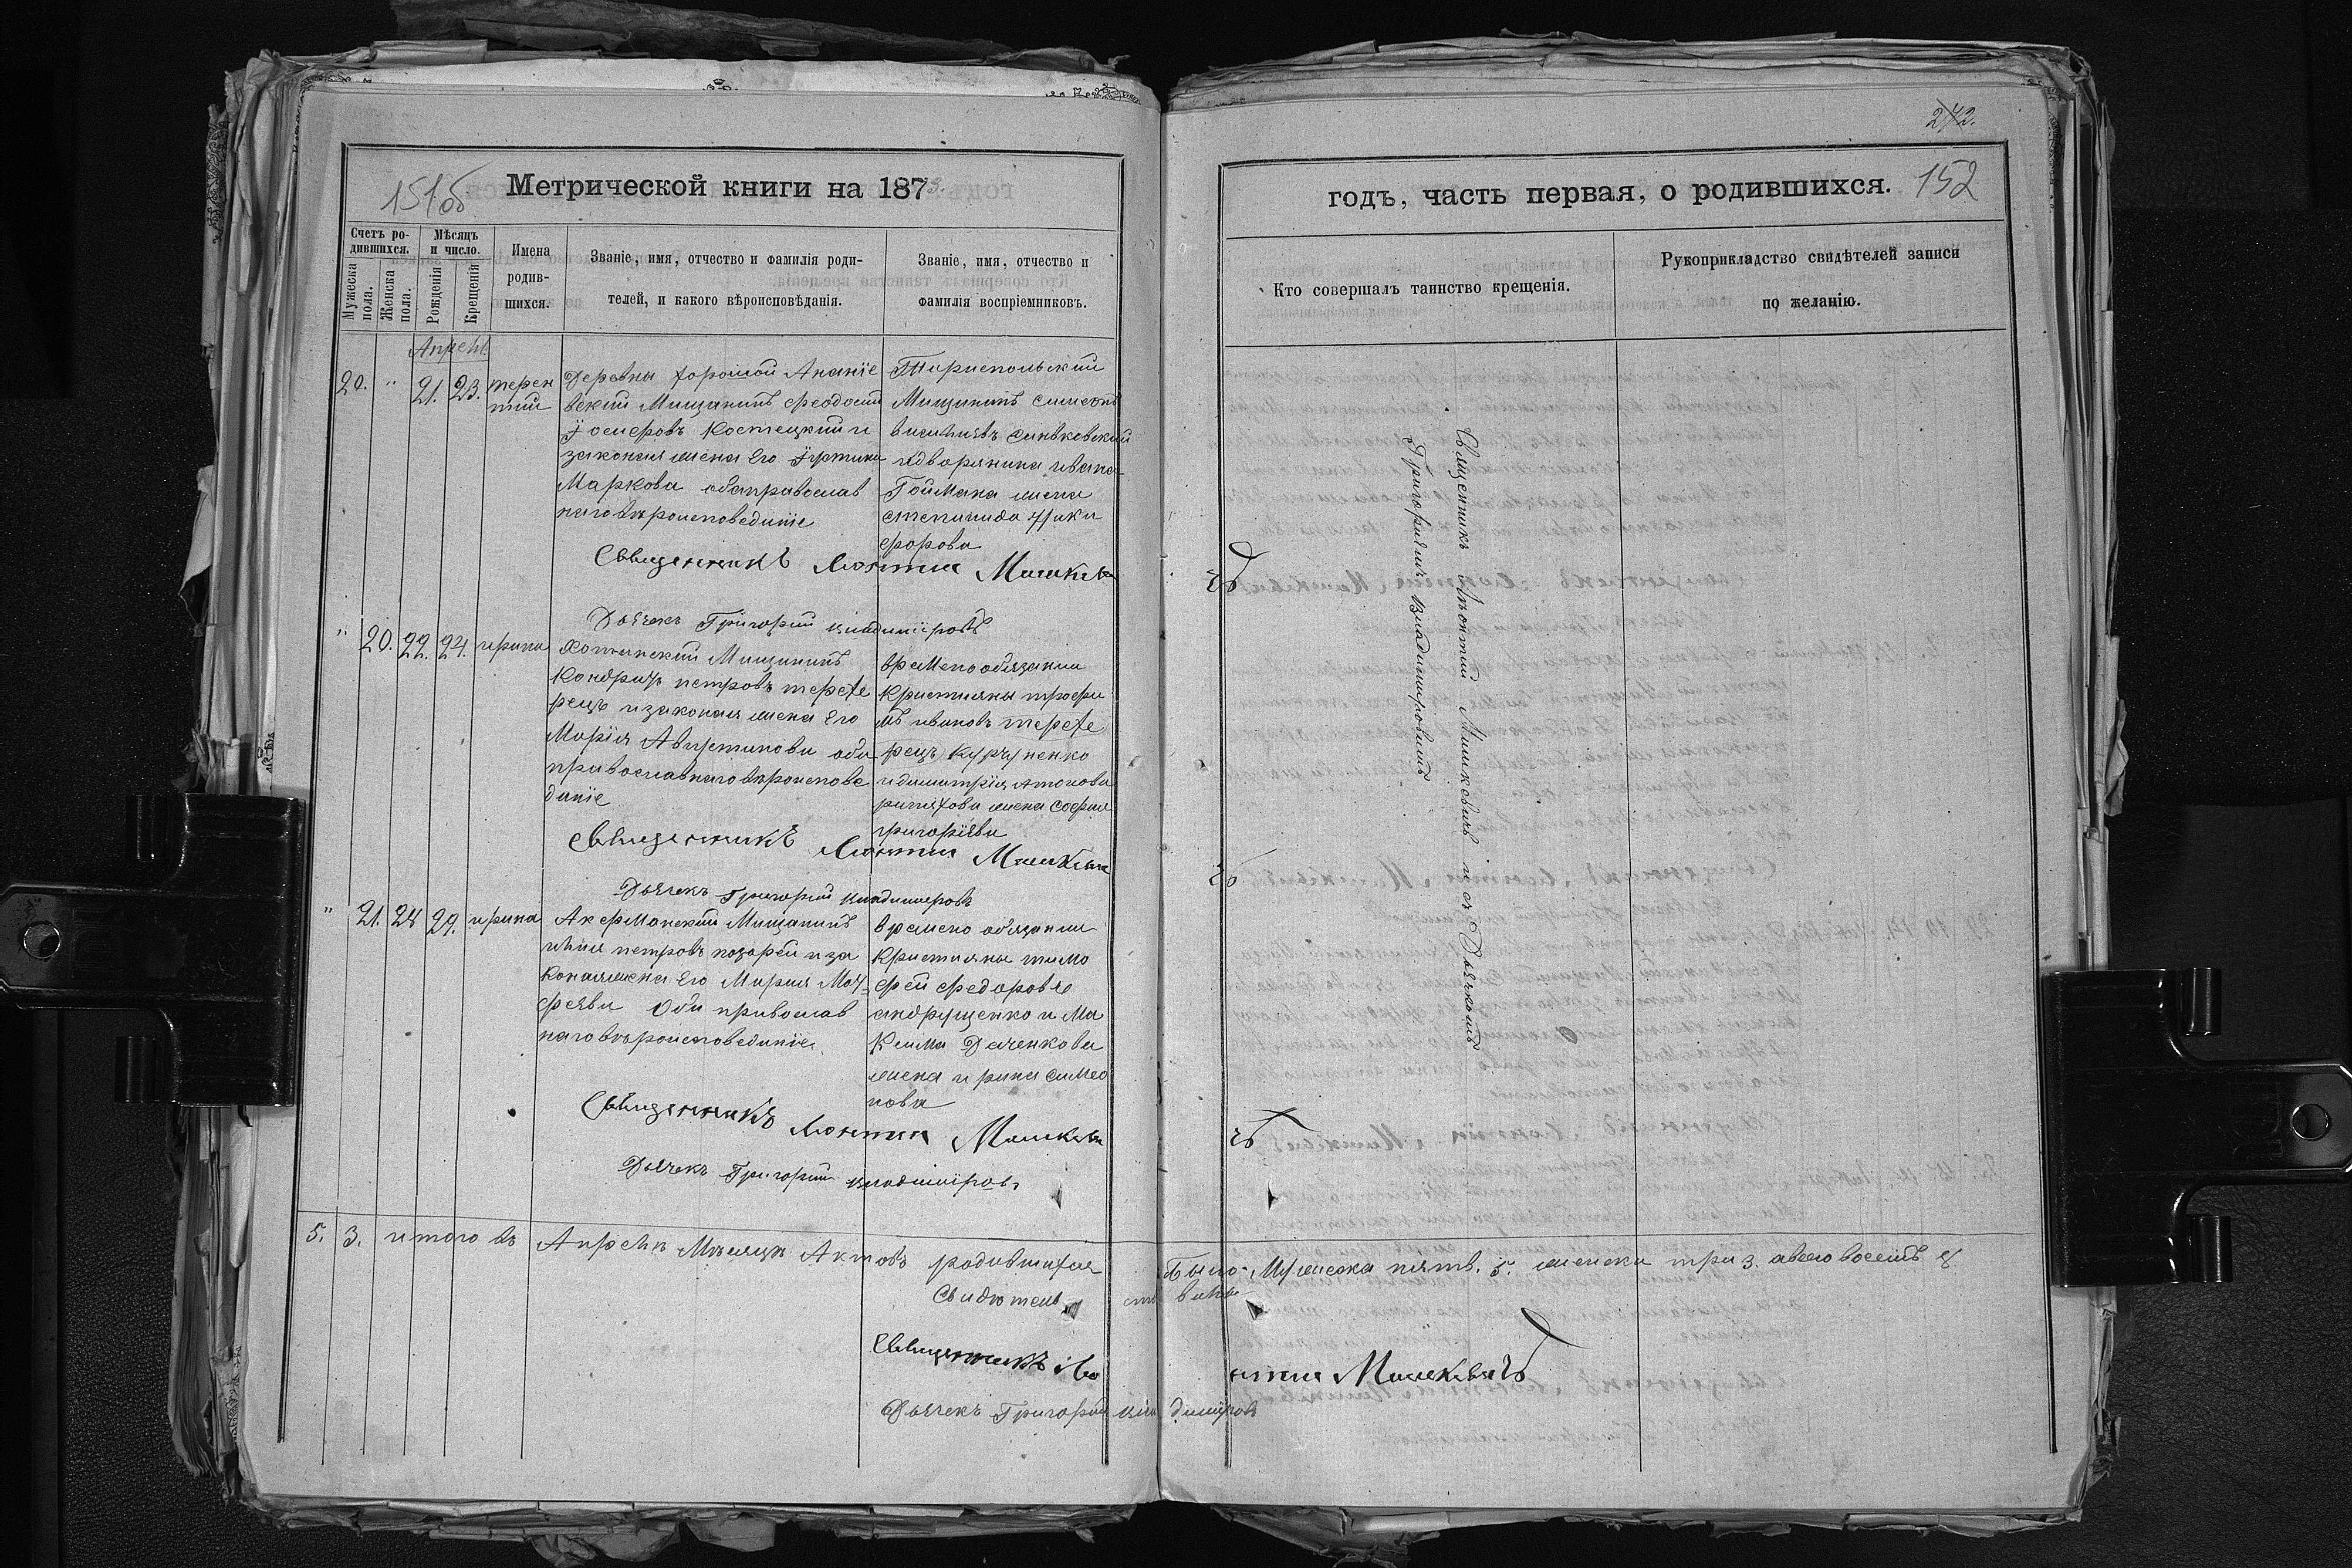 151об
Метрической книги на 1873.
Счетъ родившихся.
Мужеска пола.
Женска пола.
Мѣсяцъ и число.
Рожденія
Крещенія
Имена родившихся.
Званіе, имя, отчество и фамилія роди-
телей, и какого вѣроисповѣданія.
Званіе, имя, отчество и
фамилія воспріемниковъ.
Апрель
20. " 21. 23. терен
тий
Деревни хорошой Ананіе
вский Мищанинъ Феодосий
Костецкий и
законая жена Его Іустина
Маркова оба православ
наго вѣроисповеданіе
Тириспольский
Мищининъ Симеонъ
васильевъ Синьковский
и дворянина ивана
Гоймана жена
степанида Ники
форова
Священникъ Леонтии Машкеви
Дьячекъ Григорий владиміровъ
" 20. 22. 24. ирина
Хотинский Мищининъ
Кондрать петровъ терехе
рецъ и законая жена Его
Марія Августинова оба
православнаго вѣроисповe
даніе
времено обязании
Кристияны трофи
мъ ивановъ терехе
рецъ
и димитрія
жена софия
григоріева
Священникъ Леонтии Машкеви
Дьячекъ Григорий владимировъ
" 21. 24 29. ирина
Акерманский Мищанинъ
илия петровъ и за
коная жена Его Мария Мат
феява Оба православ
наго вѣроисповеданіе
времено обязании
Кристияны тимо
фей федоровъ
андрущенко и Ма
ксима Даченкова
жена ирина симео
нова
Священникъ Леонтии Машкеви
Дьячекъ Григорий владиміровъ
5. 3. итого въ Апрелѣ Мѣсяцѣ Актовъ родившихся
Свидѣтель
Священникъ Лео
Дьячекъ Григорий вла
272.
годъ, часть первая, о родившихся. 152
Кто совершалъ таинство крещенія.
Рукоприкладство свидѣтелей записи
по желанію.
Священникъ Леонтий Мишкевичъ и съ Дьячкомъ
Григориямъ Владимировымъ
чъ
чъ
чъ
Было: Мужеска пять. 5. женска три 3. а всего восемъ 8
нтии Мишкевичъ
диміровъ